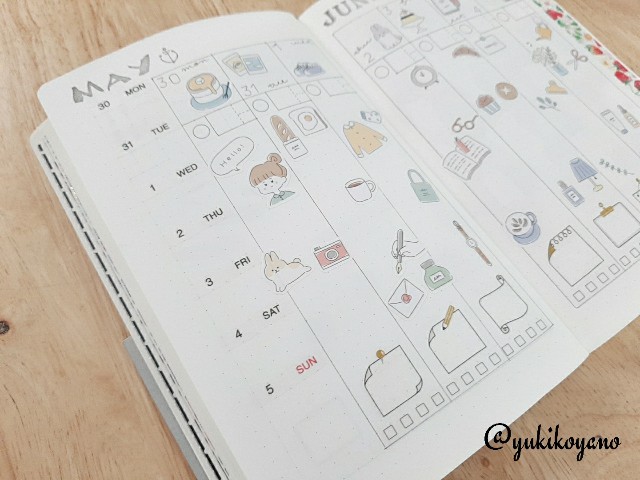 MAY
JUN
30 MON
31 TUE
1 WED
2 THU
3 FRI
4 SAT
5 SUN
30 mon
31 tue
1 wed
2
3
Hello!
@yukikoyano